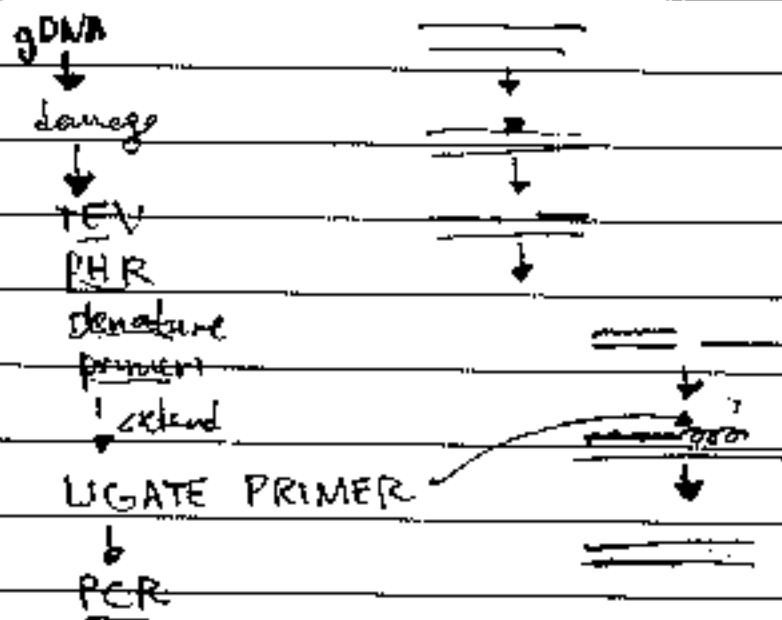 gDNA
damage
TEV
PHR
denature
primer
extend
?
LIGATE PRIMER
PCR